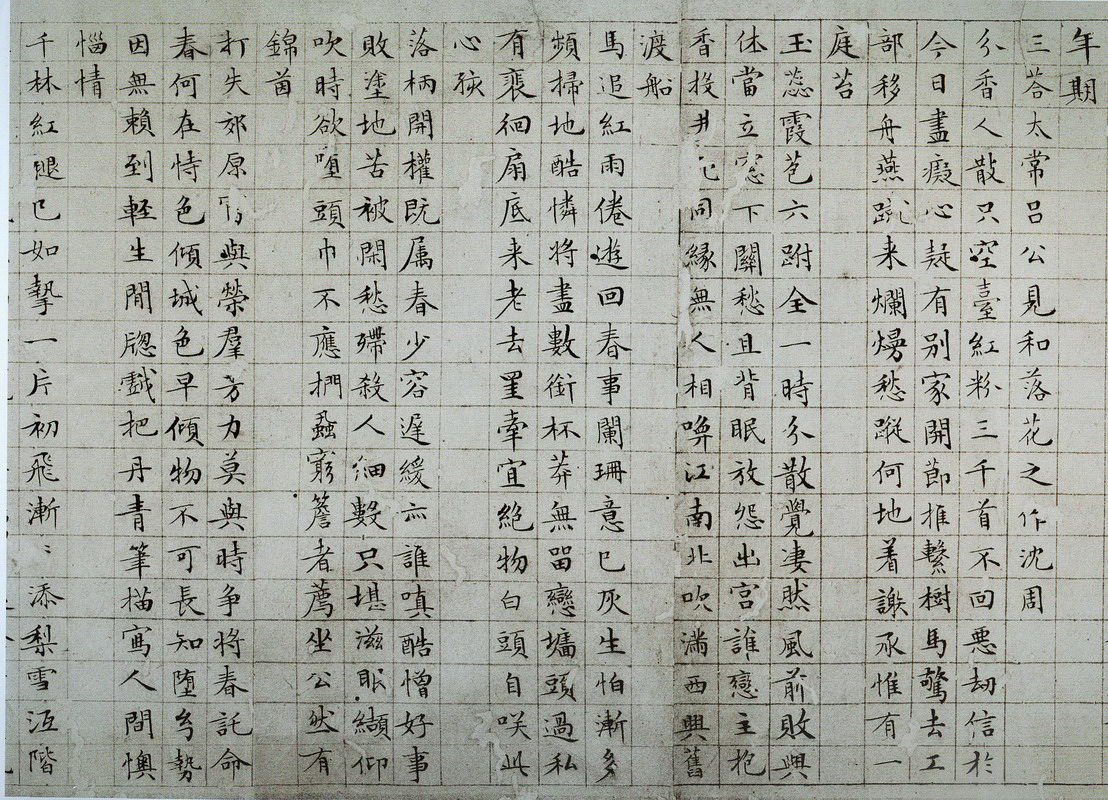 年期
三荅太常呂公見和落花之作沈周
分香人散只空臺紅粉三千首不回惡劫信於
今日盡癡心疑有別家開節推繫樹馬驚去工
部移舟燕蹴来爛熳愁蹤何地着謝承惟有一
庭苔
玉蕊霞苞六跗全一時分散覺凄然風前敗興
休當立窓下關愁且背眠放怨出宮誰戀主抱
香投井死同緣無人相喚江南北吹滿西興舊
渡船
馬追紅雨倦遊回春事闌珊意已灰生怕漸多
頻掃地酷憐將盡數銜杯莽無留戀墻頭過私
有裵徊扇底来老去罣牽宜絕物白頭自咲此
心孩
落柄開權既属春少容遅緩亦誰嗔酷憎好事
敗塗地苦被閑愁殢殺人細數只堪滋眼纈仰
吹時欲堕頭巾不應捫蝨窮簷者薦坐公然有
錦茵
打失郊原富與榮羣芳力莫與時争將春託命
春何在恃色傾城色早傾物不可長知堕幻勢
因無賴到輕生閒牕戲把丹青筆描寫人間懊
惱情
千林紅褪已如一片初飛漸〻添梨雪沍階